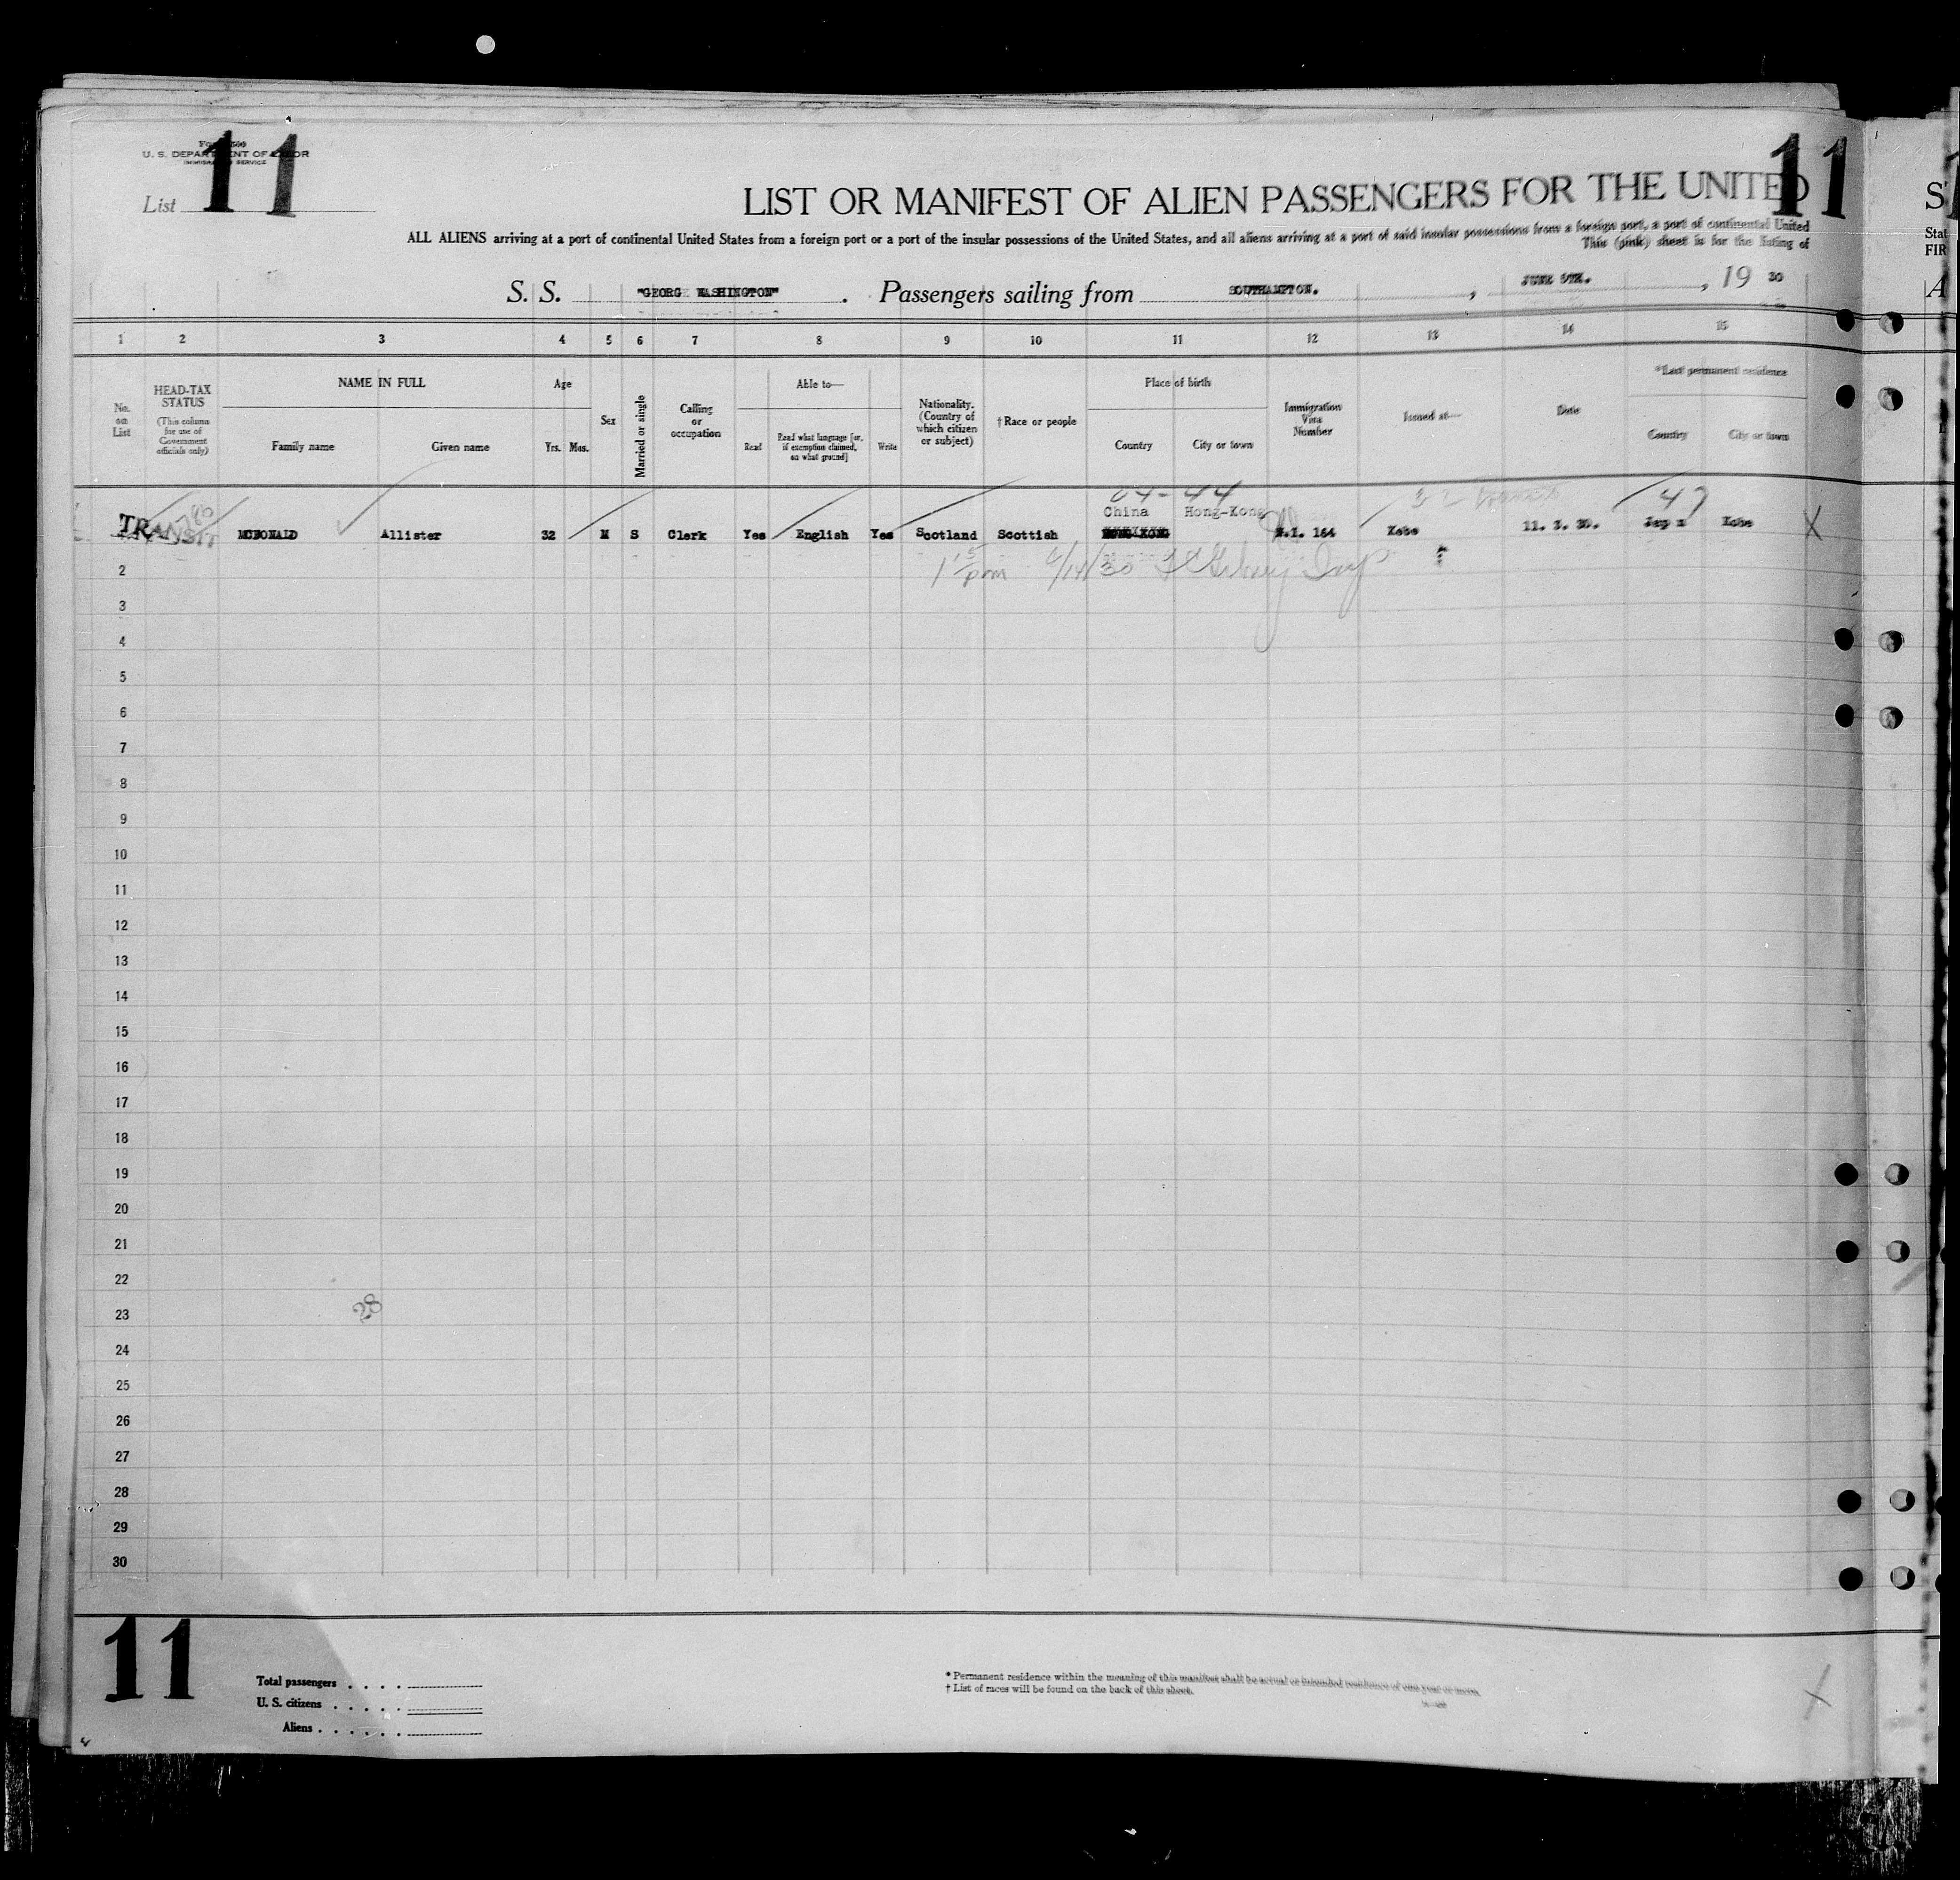 11
11
U. S. DEPARTMENT OF LABOR
IMMIGRATION SERVICE
List
LIST OR MANIFEST OF ALIEN PASSENGERS FOR THE UNITED
ALL ALIENS arriving at a port of continental United States from a foreign port or a port of the insular possessions of the United States, and all aliens arriving at a port of said insular possessions from a foreign port, a port of continental United
This (pink) sheet is for the listing of
S. S. "GEORGE WASHINGTON" . Passengers sailing from SOUTHAMPTON. , JUNE 5TH. , 19 30
1 2 3 4 5 6 7 8 9 10 11 12 13 14 15
No. on List
HEAD-TAX STATUS
(This column for use of Government officials only)
NAME IN FULL
Family name Given name
Age
Yrs. Mos.
Sex
Married or single
Calling or occupation
Able to—
Read
Read what language [or, if exemption claimed, on what ground]
Write
Nationality. (Country of which citizen or subject)
† Race or people
Place of birth
Country City or town
Immigration Visa Number
Issued at—
Date
*Last permanent residence
Country City or town
04-44 47
China Hong-Kong
TRANSIT MCDONALD Allister 32 M S Clerk Yes English Yes Scotland Scottish HONG KONG 164 Kobe 11. 3. 30. Kobe X
6/14/30
2
3
4
5
6
7
8
9
10
11
12
13
14
15
16
17
18
19
20
21
22
23
24
25
26
27
28
29
30
28
11
Total passengers
U. S. citizens
Aliens
* Permanent residence within the meaning of this manifest shall be actual or intended residence of one year or more.
† List of races will be found on the back of this sheet.
X
Stat
FIR